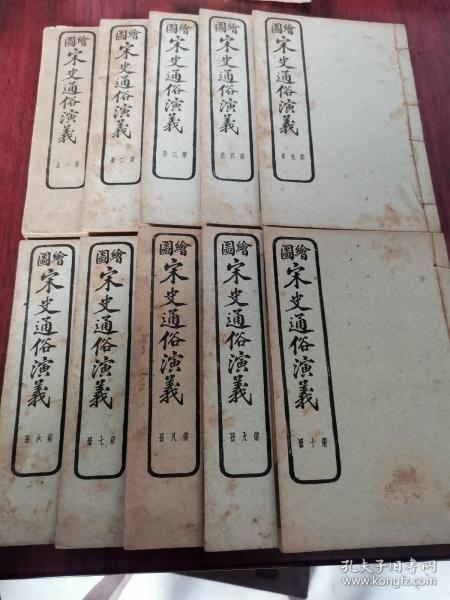 繪圖
宋史通俗演義
第一冊
繪圖
宋史通俗演義
第二冊
繪圖
宋史通俗演義
第三冊
繪圖
宋史通俗演義
第四冊
繪圖
宋史通俗演義
第五冊
繪圖
宋史通俗演義
第六冊
繪圖
宋史通俗演義
第七冊
繪圖
宋史通俗演義
第八冊
繪圖
宋史通俗演義
第九冊
繪圖
宋史通俗演義
第十冊
孔夫子旧书网
www.kongfz.com